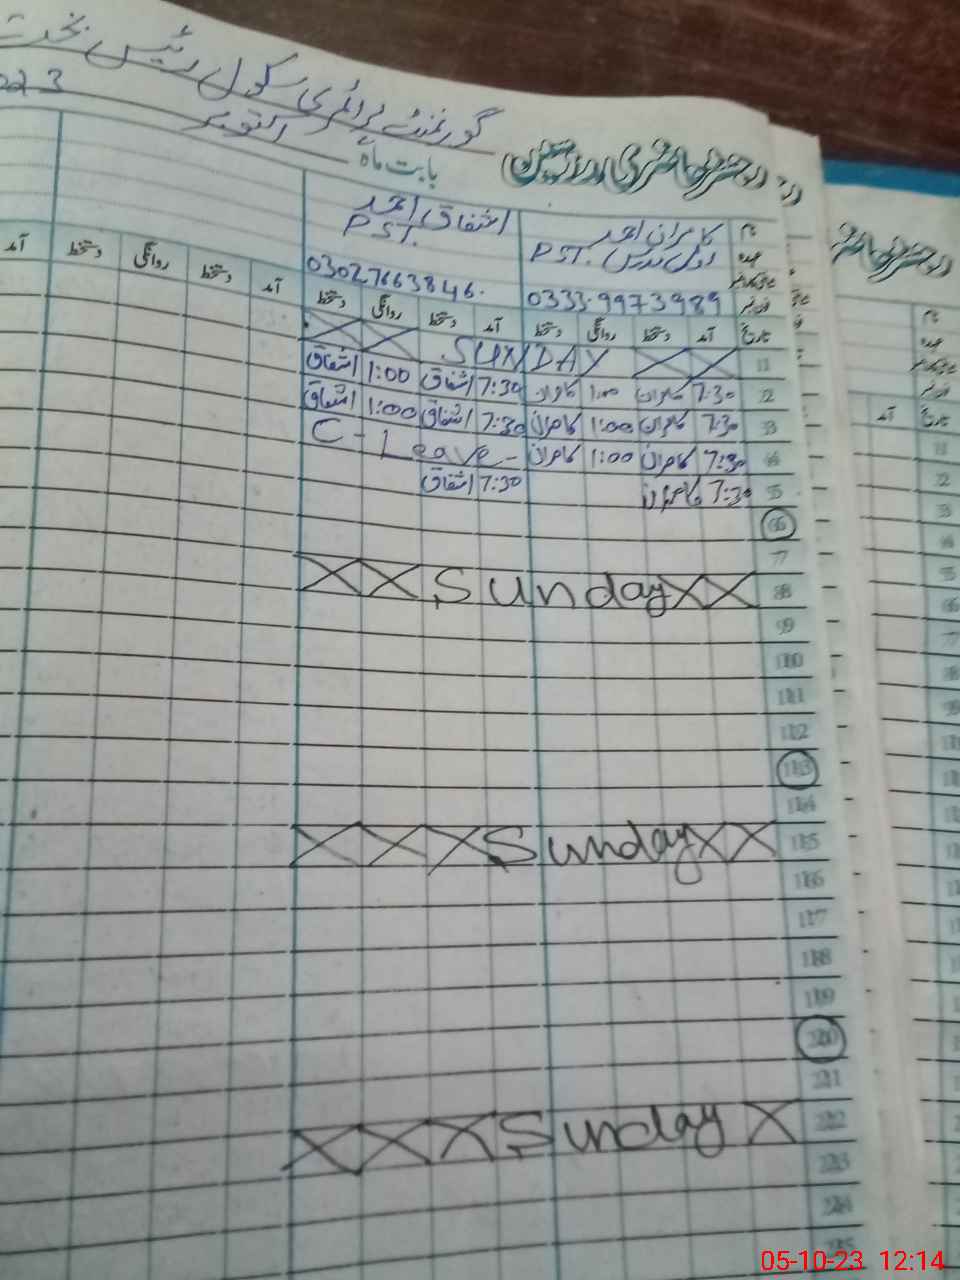 گورنمنٹ پرائمری سکول رئیس بخت
رجسٹر حاضری مدرسین
بابت ماہ اکتوبر 2023
نام کامران احمد اشفاق احمد
عہدہ اول مدرس PST. PST.
فون نمبر 0333-9973989 03027663846.
تاریخ آمد دستخط روانگی دستخط آمد دستخط روانگی دستخط آمد دستخط روانگی دستخط آمد
1 SUNDAY
2 7:30 کامران 1:00 کامران 7:30 اشفاق 1:00 اشفاق
3 7:30 کامران 1:00 کامران 7:30 اشفاق 1:00 اشفاق
4 7:30 کامران 1:00 کامران C-Leave-
5 7:30 کامران 7:30 اشفاق
6
7
8 XX Sunday XX
9
10
11
12
13
14
15 XXX Sunday XX
16
17
18
19
20
21
22 XXX Sunday X
23
24
25
05-10-23 12:14